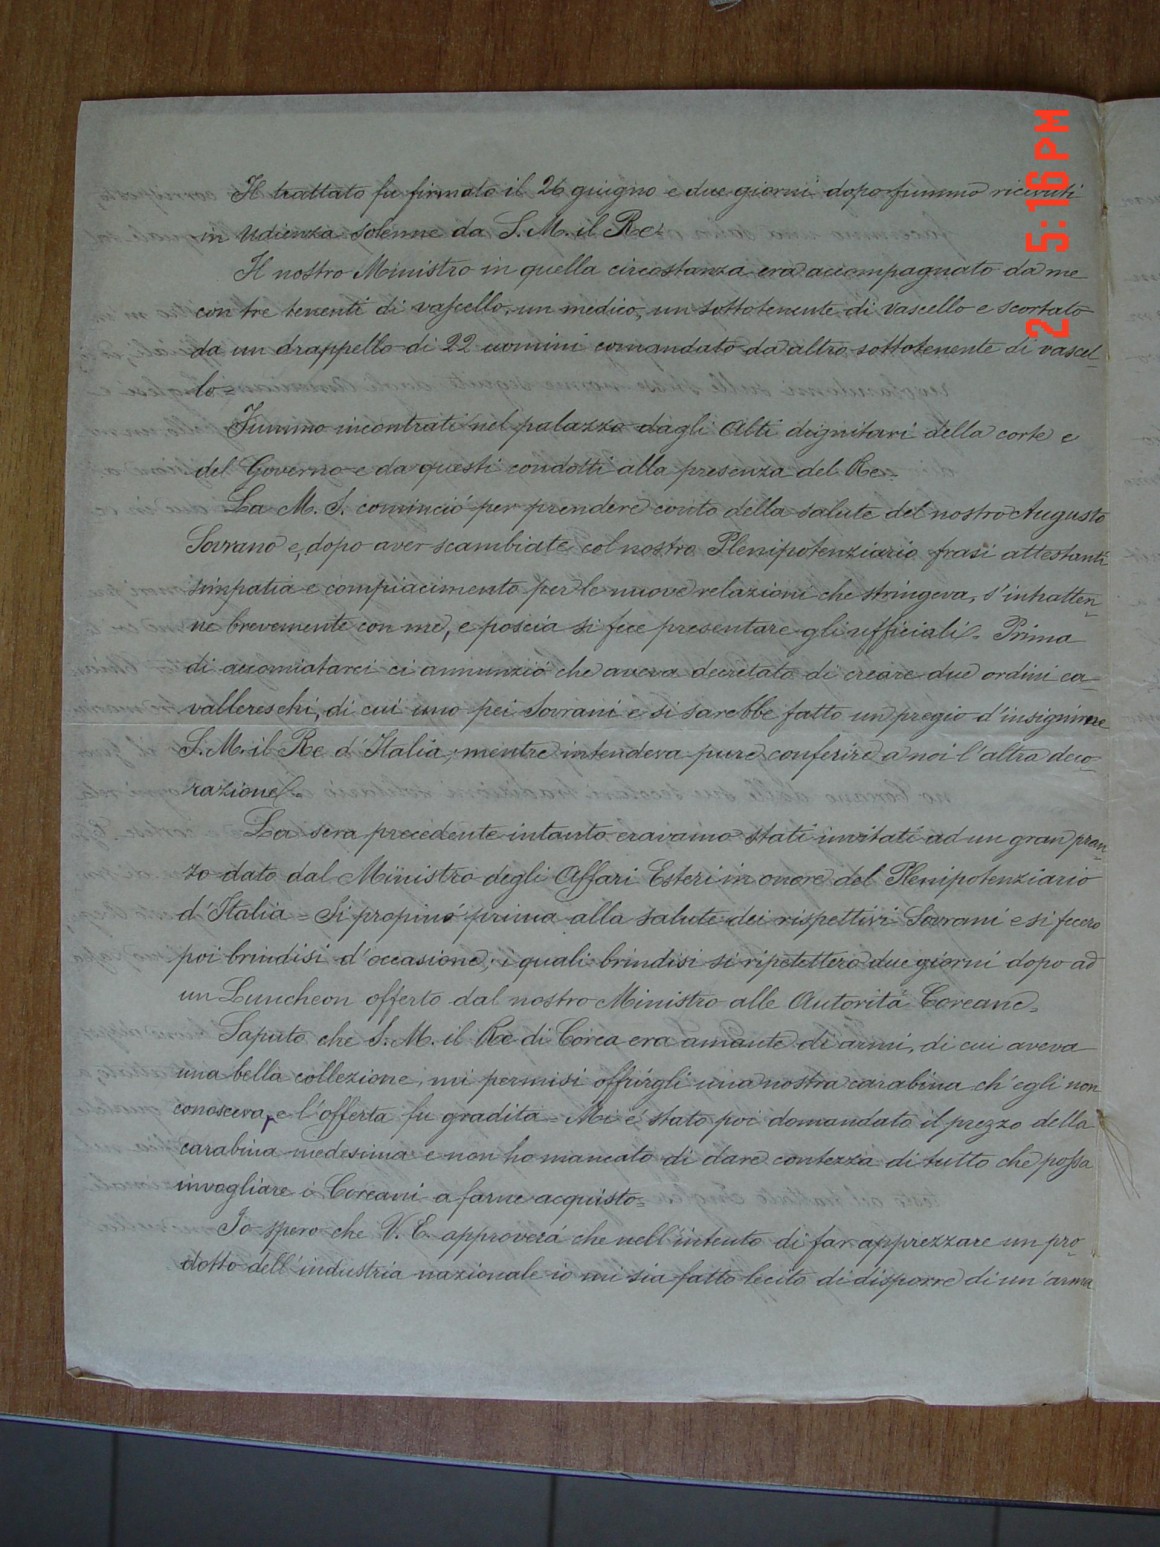 Il trattato fu firmato il 26 giugno e due giorni dopo fummo ricevuti
in udienza solenne da S. M. il Re.
Il nostro Ministro in quella circostanza era accompagnato da me
con tre tenenti di vascello, un medico, un sottotenente di vascello e scortato
da un drappello di 22 uomini comandato da altro sottotenente di vascel-
lo =
Fummo incontrati nel palazzo dagli Alti dignitari della corte e
del Governo e da questi condotti alla presenza del Re =
La M. S. cominciò per prendere conto della salute del nostro Augusto
Sovrano e, dopo aver scambiate col nostro Plenipotenziario frasi attestanti
simpatia e compiacimento per le nuove relazioni che stringeva, s'intratten-
ne brevemente con me, e poscia si fece presentare gli ufficiali. Prima
di accomiatarci ci annunziò che aveva decretato di creare due ordini ca-
vallereschi, di cui uno pei Sovrani e si sarebbe fatto un pregio d'insignirne
S. M. il Re d'Italia, mentre intendeva pure conferire a noi l'altra deco-
razione =
La sera precedente intanto eravamo stati invitati ad un gran pran-
zo dato dal Ministro degli Affari Esteri in onore del Plenipotenziario
d'Italia = Si propinò prima alla salute dei rispettivi Sovrani e si fecero
poi brindisi d'occasione; i quali brindisi si ripetettero due giorni dopo ad
un Luncheon offerto dal nostro Ministro alle Autorità Coreane =
Saputo che S. M. il Re di Corea era amante di armi, di cui aveva
una bella collezione, mi permisi offrirgli una nostra carabina ch'egli non
conosceva, e l'offerta fu gradita = Mi è stato poi domandato il prezzo della
carabina medesima e non ho mancato di dare contezza di tutto che possa
invogliare i Coreani a farne acquisto =
Io spero che V. E. approverà che nell'intento di far apprezzare un pro-
dotto dell'industria nazionale io mi sia fatto lecito di disporre di un'arma
2 5:16 PM